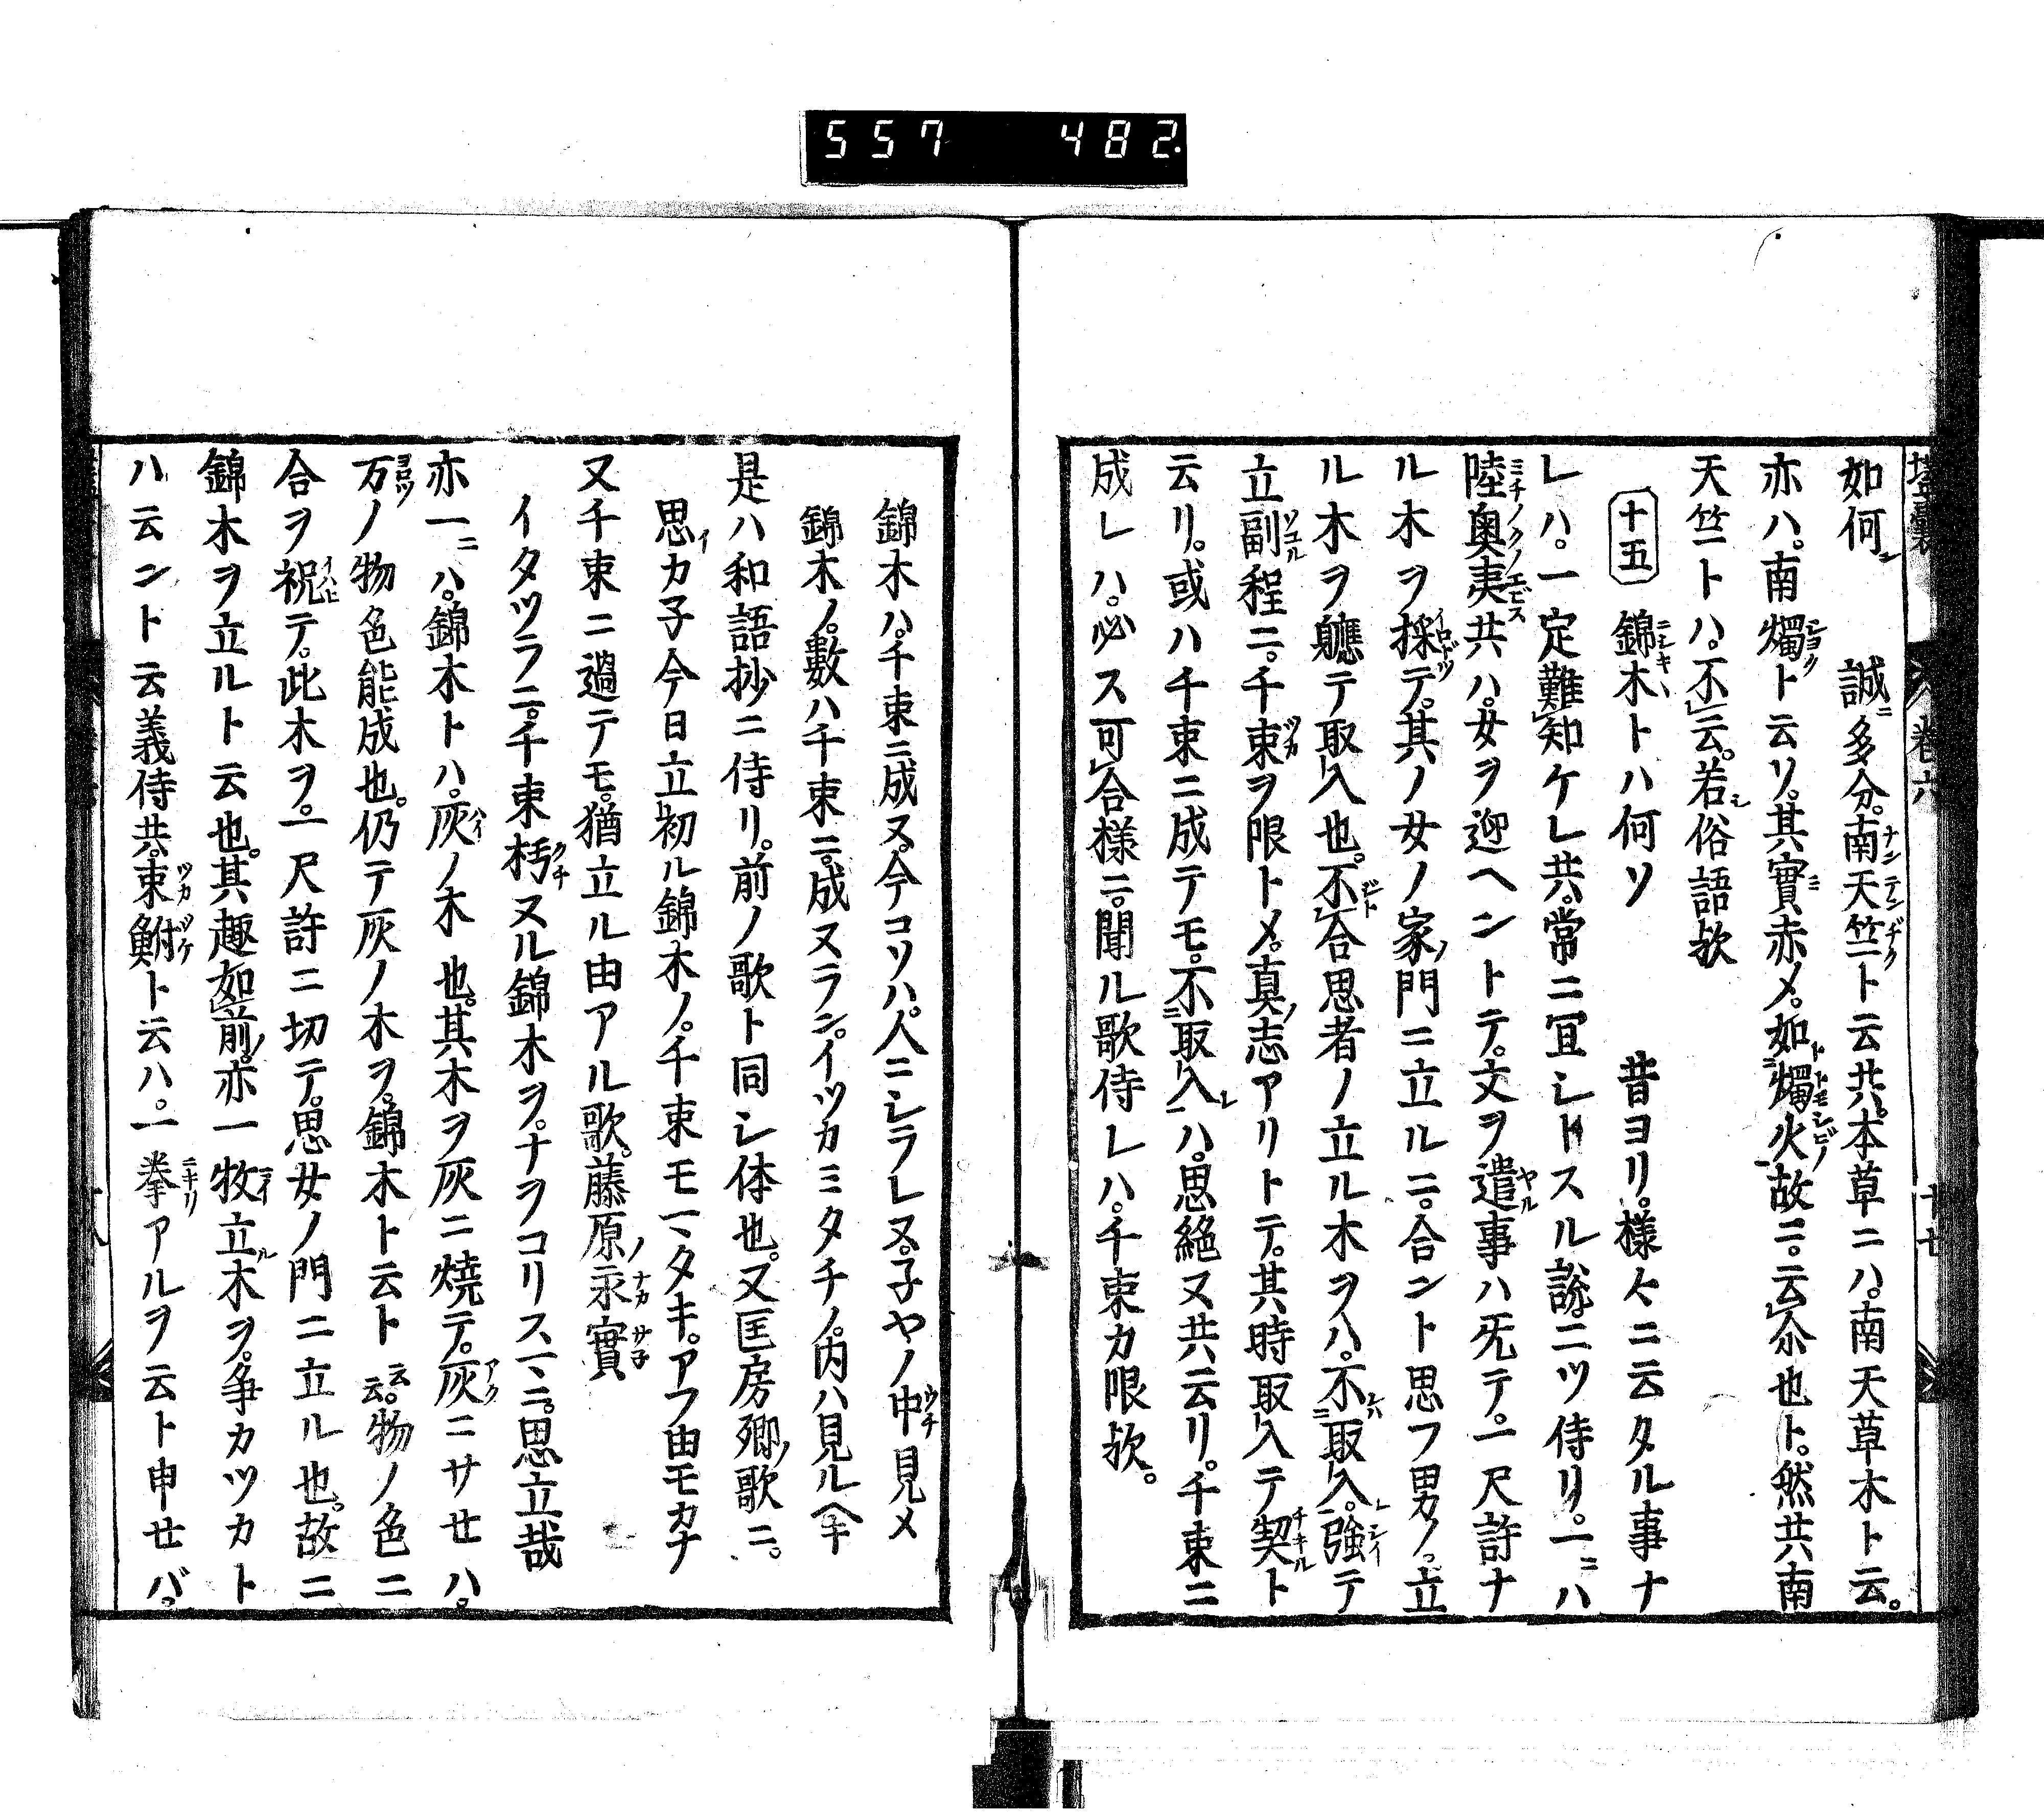 557 482
壒囊 巻六 十七
如何 誠ニ多分南天竺ト云共。本草ニハ。南天草木ト云。
亦ハ。南燭ト云リ。其實赤メ。如燭火故ニ。云尒也ト。然共南
天竺トハ。不云。若俗語欤
十五 錦木トハ何ソ 昔ヨリ。様々ニ云タル事ナ
レハ。一定難知ケレ共。常ニ冝シトスル説。ニツ侍リ。一ニハ
陸奥夷共ハ。女ヲ迎ヘントテ。文ヲ遣事ハ旡テ。一尺許ナ
ル木ヲ採テ。其ノ女ノ家ノ門ニ立ルニ。合ント思フ男ノ。立
ル木ヲ軈テ取入也。不合思者ノ立ル木ヲハ。不取入。強テ
立副程ニ。千束ヲ限トメ。真ノ志アリトテ。其時取入テ契ト
云リ。或ハ千束ニ成テモ。不取入ハ。思絶ヌ共云リ。千束ニ
成レハ。必ス可合様ニ。聞ル歌侍レハ。千束カ限欤。
錦木ハ。千束ニ成ヌ。今コソハ。人ニシラレヌ。子ヤノ中見メ
錦木ノ。數ハ千束ニ。成ヌラン。イツカミタチノ。内ハ見ルヘキ
是ハ和語抄ニ侍リ。前ノ歌ト同シ体也。又匡房卿ノ歌ニ。
思カ子今日立初ル錦木ノ。千束モマタキ。アフ由モカナ
又千束ニ過テモ。猶立ル由アル歌。藤原ノ永實
イタツラニ。千束朽ヌル錦木ヲ。ナヲコリスマニ。思立哉
亦一ニハ。錦木トハ。灰ノ木也。其木ヲ灰ニ焼テ。灰ニサセハ。
万ノ物色能成也。仍テ灰ノ木ヲ。錦木ト云ト云云。物ノ色ニ
合ヲ祝テ。此木ヲ。一尺許ニ切テ。思女ノ門ニ立ル也。故ニ
錦木ヲ立ルト云也。其趣如前ノ。亦一枚立ル木ヲ。争カツカト
ハ云ントト云義侍共。束鮒ト云ハ。一拳アルヲ云ト申セバ。